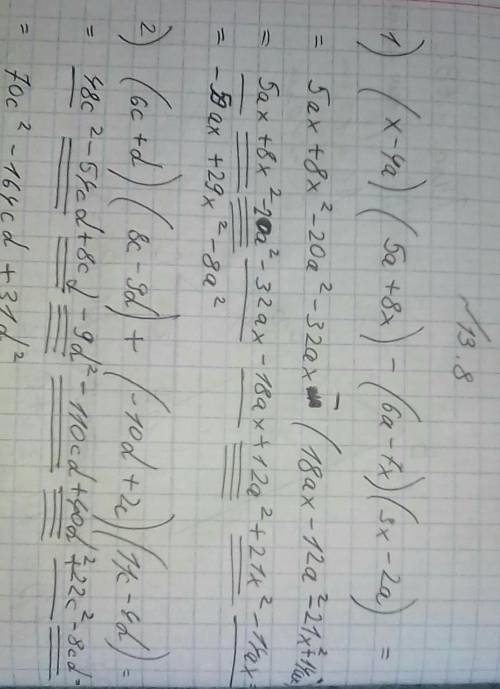 №13.8
1) (x-4a)(5a+8x)-(6a-7x)(3x-2a)=
= 5ax+8x²-20a²-32ax-(18ax-12a²-21x²+14ax
= 5ax+8x²-20a²-32ax-18ax+12a²+21x²-14ax=
= -59ax+29x²-8a²
2) (6c+d)(8c-9d)+(-10d+2c)(11c-4d)=
= 48c²-54cd+8cd-9d²-110cd+40d²+22c²-8cd=
= 70c²-164cd+31d²